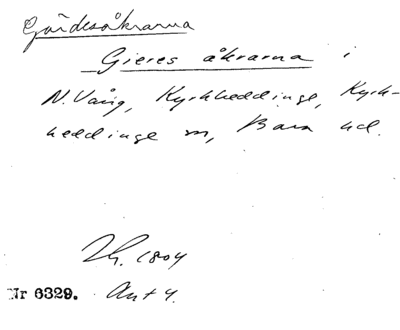 Gärdesåkrarna
Gieres åkrarna i
N. Vång, Kyrkheddinge, Kyrk-
heddinge sn, Bara hd.
1804
Nr 6329. Ant 4.